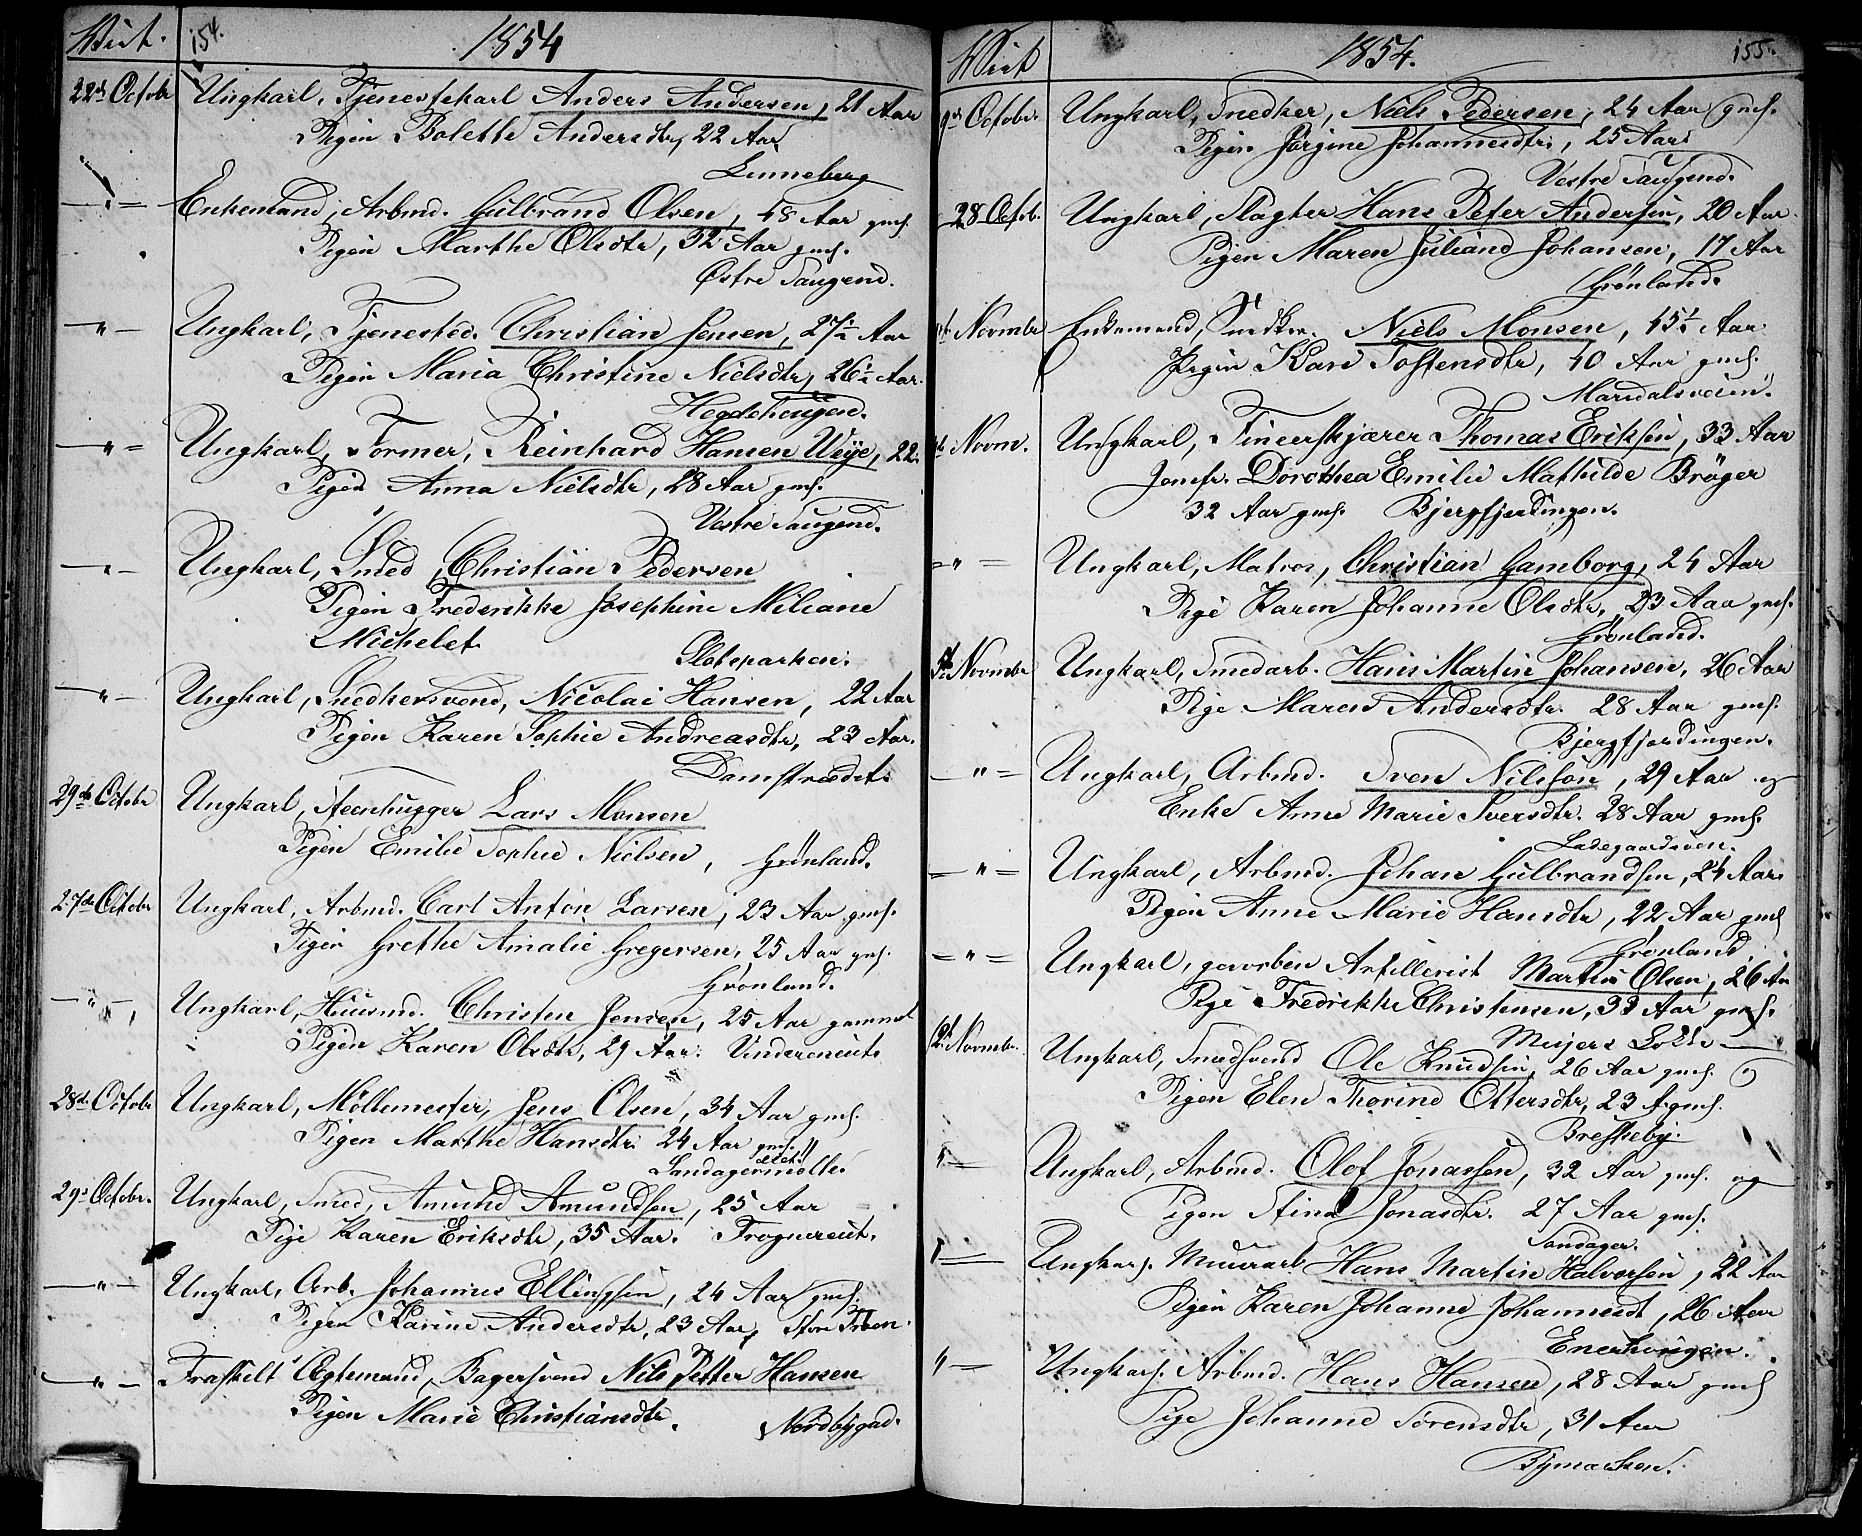 Viet. 154. 1854
22de Octobr Ungkarl, Tjenestekarl Anders Andersen, 21 Aar
Pigen Bolette Andersdtr, 22 Aar
Linneberg
— " — Enkemand, Arbmd. Gulbrand Olsen, 48 Aar gml.
Pigen Marthe Olsdtr, 32 Aar gml.
Østre Saugend.
— " — Ungkarl, Tjenested. Christian Jensen, 27½ Aar
Pigen Maria Christine Nielsdtr, 26½ Aar.
Hegdehougen.
— " — Ungkarl, Former, Reinhard Hansen Weye, 22.
Pigen Anna Nielsdtr, 28 Aar gml.
Vestre Saugend.
— " — Ungkarl, Smed, Christian Pedersen
Pigen Frederikke Josephine Miliane
Michelet.
Slotsparken.
— " — Ungkarl, Snedkersvend, Nicolai Hansen, 22 Aar
Pigen Karen Sophie Andreasdtr, 23 Aar.
Damstrædet.
29de Octobr Ungkarl, Steenhugger Lars Monsen
Pigen Emilie Sophie Nielsen, Grønland.
27de Octobr Ungkarl, Arbmd. Carl Anton Larsen, 23 Aar gml.
Pigen Grethe Amalie Gregersen, 25 Aar gml.
Grønland.
— " — Ungkarl, Huusmd. Christen Jensen, 25 Aar gammel
Pigen Karen Olsdtr, 29 Aar. Vindereneiet
28de Octobr Ungkarl, Møllemester, Jens Olsen, 34 Aar gml.
Pigen Marthe Hansdtr. 24 Aar gml.
Sandagermølle.
29de Octobr. Ungkarl, Smed, Amund Amundsen, 25 Aar
Pige Karen Eriksdtr, 35 Aar. Frognereiet.
— " — Ungkarl, Arb. Johannes Ellingsen, 24 Aar gml.
Pigen Karine Andersdtr, 23 Aar, Store Frøen.
— " — Fraskilt Ægtemand, Bagersvend Nils Petter Hansen
Pigen Marie Christiansdtr. Nordbygad.
Viet 1854. 155.
9de Octobr. Ungkarl, Snedker, Niels Pedersen, 24 Aar gml.
Pigen Jørgine Johannesdtr, 25 Aar
Vestre Saugend.
28 Octob. Ungkarl, Slagter Hans Peter Andersen, 20 Aar.
Pigen Maren Juliane Johansen, 17 Aar
Grønland.
Novmbr Enkemand, Snedker. Niels Monsen, 45½ Aar
Pigen Kari Tostensdtr, 40 Aar gml.
Maridalsveien.
Novm. Ungkarl, Fineerskjærer Thomas Eriksen, 33 Aar
Jomfr. Dorothea Emilie Mathilde Brøger
32 Aar gml. Bjergfjerdingen.
— " — Ungkarl, Matros, Christian Gamborg, 24 Aar
Pige Karen Johanne Olsdtr, 23 Aar gml.
Grønland.
5te Novmbr Ungkarl, Smedarb. Hans Martin Johansen, 26 Aar
Pige Maren Andersdtr. 28 Aar gml.
Bjergfjerdingen.
— " — Ungkarl, Arbmd. Sven Nilsson, 29 Aar og
Enke Anne Marie Iversdtr. 28 Aar gml.
Ladegaardsøen.
— " — Ungkarl, Arbmd. Johan Gulbrandsen, 24 Aar.
Pigen Anne Marie Hansdtr, 22 Aar gml
Grønland
— " — Ungkarl, gevorben Artillerist Martin Olsen, 26 Aar
Pige Fredrikke Christensen, 33 Aar gml.
Meiers Løkke
12te Novmbr. Ungkarl, Smedsvend Ole Knudsen, 26 Aar gml. og
Pigen Elen Thorine Ottersdtr, 23 A gml.
Breskeby.
" — Ungkarl, Arbmd. Olof Jonassen, 32 Aar gml. og
Pigen Stina Jonasdtr. 27 Aar gml.
Sandager.
" — Ungkarl. Muurarb. Hans Martin Halvorsen, 22 Aar
Pigen Karen Johanne Johannesdt, 26 Aar
Enerhougen.
" — Ungkarl. Arbmd. Hans Hansen, 28 Aar gml
Pige Johanne Sørensdtr, 31 Aar
Bymarken.